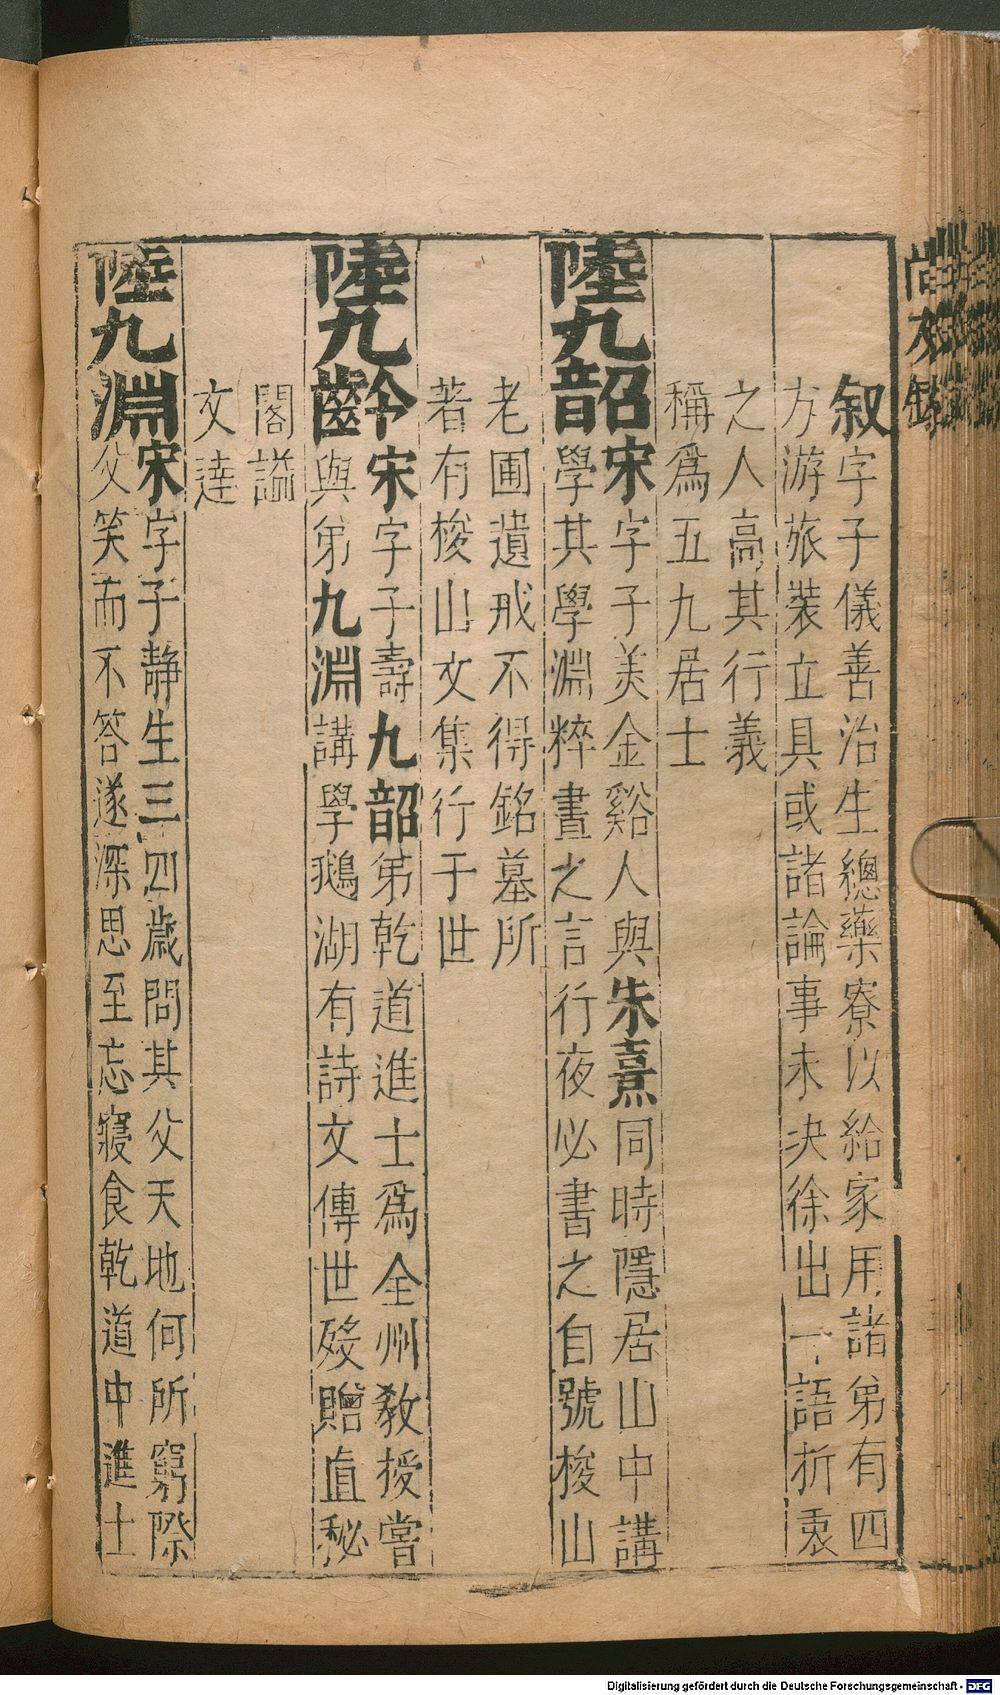 叙字子儀善治生總藥寮以給家用諸弟有四
方游旅裝立具或諸論事未决徐出一語折衷
之人高其行義
稱爲五九居士
陸九韶宋字子美金谿人與朱熹同時隱居山中講
學其學淵粹晝之言行夜必書之自號梭山
老圃遺戒不得銘墓所
著有梭山文集行于世
陸九齡宋字子壽九韶弟乾道進士爲全州教授嘗
與弟九淵講學鵝湖有詩文傳世殁贈直秘
閣謚
文達
陸九淵宋字子静生三四歲問其父天地何所窮際
父笑而不答遂深思至忘寢食乾道中進士
Digitalisierung gefördert durch die Deutsche Forschungsgemeinschaft - DFG